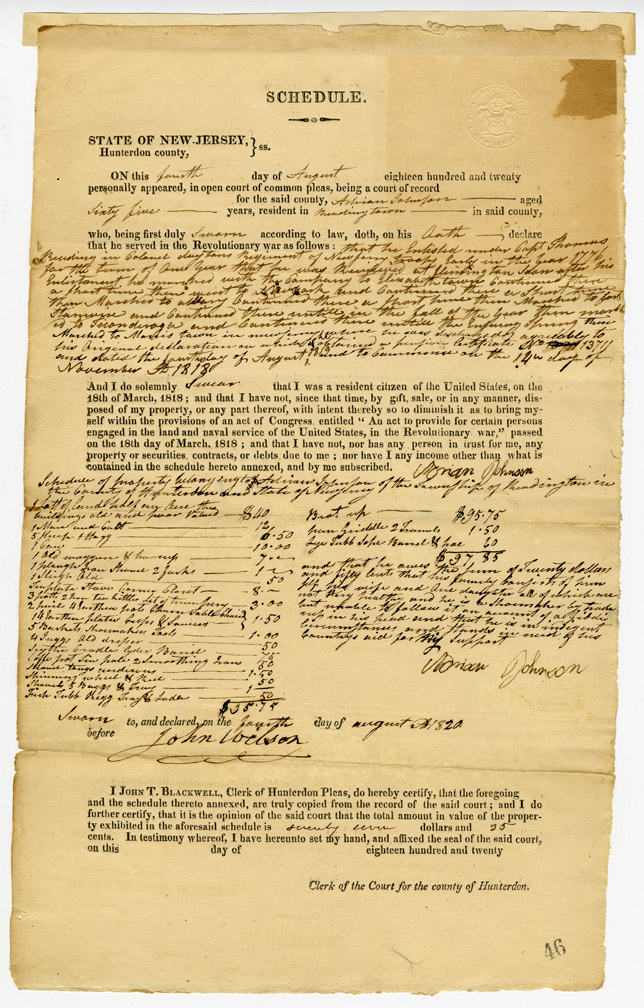 SCHEDULE.
STATE OF NEW-JERSEY,
Hunterdon county, } ss.
ON this fourth day of August eighteen hundred and twenty
personally appeared, in open court of common pleas, being a court of record
for the said county, Adrian Johnson aged
Sixty five years, resident in Readingtown in said county,
who, being first duly Sworn according to law, doth, on his Oath, declare
that he served in the Revolutionary war as follows: that he Enlisted under Capt Thomas
in Colonel Daytons Regiment of New Jersey troops Early in the year 1776
for the term of One Year that he was at flemington Soon after his
Enlistment he marched with the Company to Elizabeth town Continued there
a short time then went to and Continued there a short time
then Marched to albany Continued there a short time then Marched to fort
and Continued there untill in the fall of the Year then march
ed to Ticonderoga and Continued there untill the Ensuing Spring then
Marched to
his Original declaration on which he obtained a pension Certificate No 13711
and dated the fourth day of August and to Commence on the 14th day of
November 1818
And I do solemnly Swear that I was a resident citizen of the United States, on the
18th of March, 1818; and that I have not, since that time, by gift, sale, or in any manner, dis-
posed of my property, or any part thereof, with intent thereby so to diminish it as to bring my-
self within the provisions of an act of Congress entitled "An act to provide for certain persons
engaged in the land and naval service of the United States, in the Revolutionary war," passed
on the 18th day of March, 1818; and that I have not, nor has any person in trust for me, any
property or securities, contracts, or debts due to me; nor have I any income other than what is
contained in the schedule hereto annexed, and by me subscribed. Adrian Johnson
Schedule of property belonging to Adrian Johnson of the Township of Readington in
the County of Hunterdon and State of New Jersey
Lot of Land half an Acre
buildings old and poor Valued $40
1 Mare and Colt 12
5 Sheep 1 Hogg 6.50
1 Cow 10.00
1 Old waggon & 7
1 plough 1
1 Sleigh Old 50
Stove Corner Cubert 8
3 potts 2 tea kettle frying pan 3.00
14 Earthen plates Cups & Saucers 1.50
5 Baskets Shoemakers Tools
4 Juggs Old dresser 1.00
Scythe Cradle Cyder Barrel 50
Coffee pot Tin pale 2 Smoothing Irons
Spinning wheel & Reel
5 Baggs & Tray 1.50
Fish Tubb & Ladder 50
$95.75
Brot up $95.75
Iron Griddle 2 Trammels 1.50
Lye Tubb Sope Barrel & hoe 60
$97.85
and that he owes the sum of Twenty dollars
and fifty Cents that his family Consists of him
self his wife and One daughter all of which are
not very healthy and he is a Shoemaker by trade
but unable to follow it
in his head and that he is in indigent
circumstances and stands in need of his
Countrys aid for his Support
Adrian Johnson
Sworn to, and declared, on the fourth day of August 1820
before John Wilson
I JOHN T. BLACKWELL, Clerk of Hunterdon Pleas, do hereby certify, that the foregoing
and the schedule thereto annexed, are truly copied from the record of the said court; and I do
further certify, that it is the opinion of the said court that the total amount in value of the proper-
ty exhibited in the aforesaid schedule is seventy seven dollars and 25
cents. In testimony whereof, I have hereunto set my hand, and affixed the seal of the said court,
on this day of eighteen hundred and twenty
Clerk of the Court for the county of Hunterdon.
46